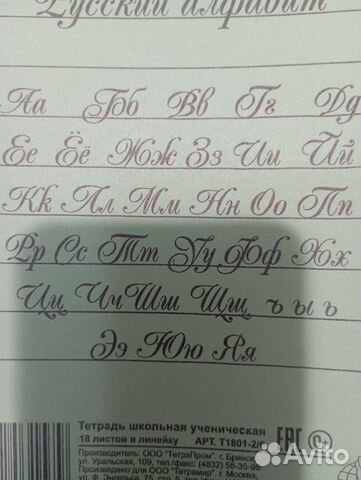 Русский алфавит
Аа Бб Вв Гг Дд
Ее Ёё Жж Зз Ии Йй
Кк Лл Мм Нн Оо Пп
Рр Сс Тт Уу Фф Хх
Цц Чч Шш Щщ ъ ы ь
Ээ Юю Яя
Тетрадь школьная ученическая
18 листов в линейку АРТ. Т1801-2/
Производитель: ООО "ТетраПром" г. Брянск,
ул. Уральская, 109, тел./факс: (4832) 58-35-96
Поставщик: ООО "Тетрамир", г. Москва,
ул. Ф. Энгельса, 75, стр.
EAC 0+
Avito